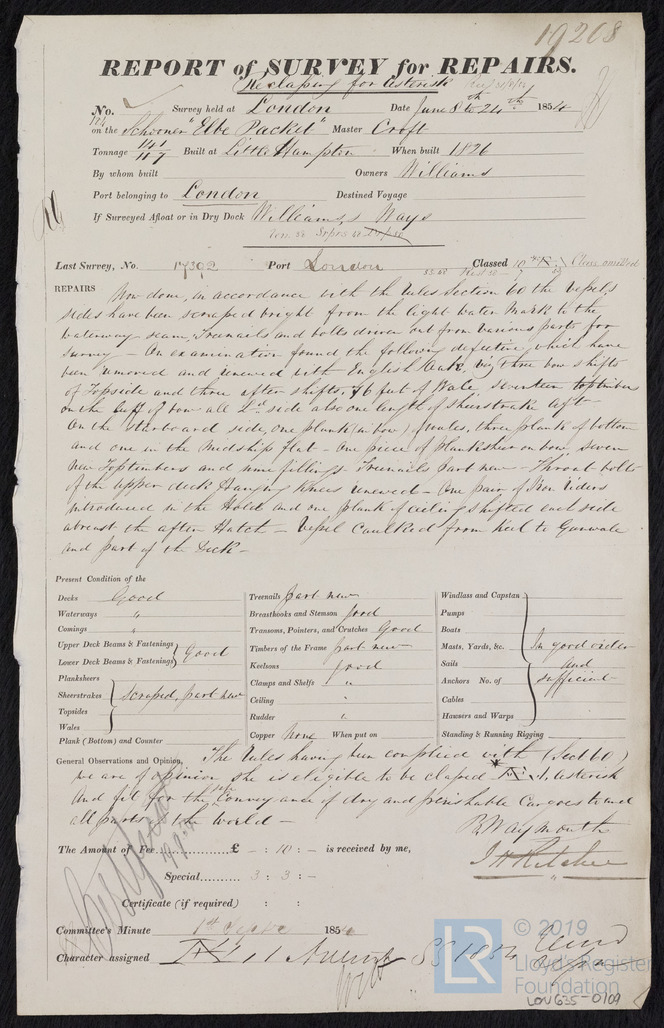 19268
REPORT of SURVEY for REPAIRS.
Reclassing for Asterisk
No. Survey held at London Date June 8th to 24th 1854
on the Schooner "Elbe Packet" Master Croft
Tonnage 141 117 Built at Little Hampton When built 1826
By whom built Owners Williams
Port belonging to London Destined Voyage
If Surveyed Afloat or in Dry Dock Williams's Ways
Last Survey, No. 17392 Port London Classed 10
REPAIRS Now done, in accordance with the Rules Section 60 the vessel's
sides have been scraped bright from the light water mark to the
waterway seam, Treenails and bolts driven out from various parts for
survey – On examination found the following defective, which have
been removed and renewed with English Oak, viz three bow shifts
of Topside and three after shifts, 76 feet of Wale, seventeen toptimbers
on the Luff of bow all 2nd side also one length of sheerstrake aft –
On the starboard side, one plank (in bow) of wales, three plank of bottom
and one in the midship flat – One piece of planksheer on bow, seven
new Toptimbers and some fillings – Treenails part new – Throat bolts
of the upper deck Hanging Knees renewed – One pair of Iron Riders
introduced in the Hold and one plank of ceiling shifted each side
abreast the after Hatch – Vessel Caulked from Keel to Gunwale
and part of the Deck –
Present Condition of the
Decks Good
Waterways "
Comings "
Upper Deck Beams & Fastenings
Lower Deck Beams & Fastenings } Good
Planksheers
Sheerstrakes
Topsides
Wales } Scraped, part new
Plank (Bottom) and Counter
Treenails part new
Breasthooks and Stemson Good
Transoms, Pointers, and Crutches Good
Timbers of the Frame part new
Keelsons Good
Clamps and Shelfs "
Ceiling
Rudder "
Copper None When put on
Windlass and Capstan
Pumps
Boats
Masts, Yards, &c.
Sails
Anchors No. of
Cables
Hawsers and Warps } In good order and sufficient
Standing & Running Rigging
General Observations and Opinion, The Rules having been complied with (Sect 60)
we are of opinion she is eligible to be classed A.1. Asterisk
And fit for the Conveyance of dry and perishable Cargoes to and
all parts of the World –
B Waymouth
The Amount of Fee £ – : 10 : – is received by me,
Special 3 : 3 : –
Certificate (if required) : :
Committee's Minute 1st 1854
Character assigned
© 2019
LR
Lloyd's Register
Foundation
LON635-0109